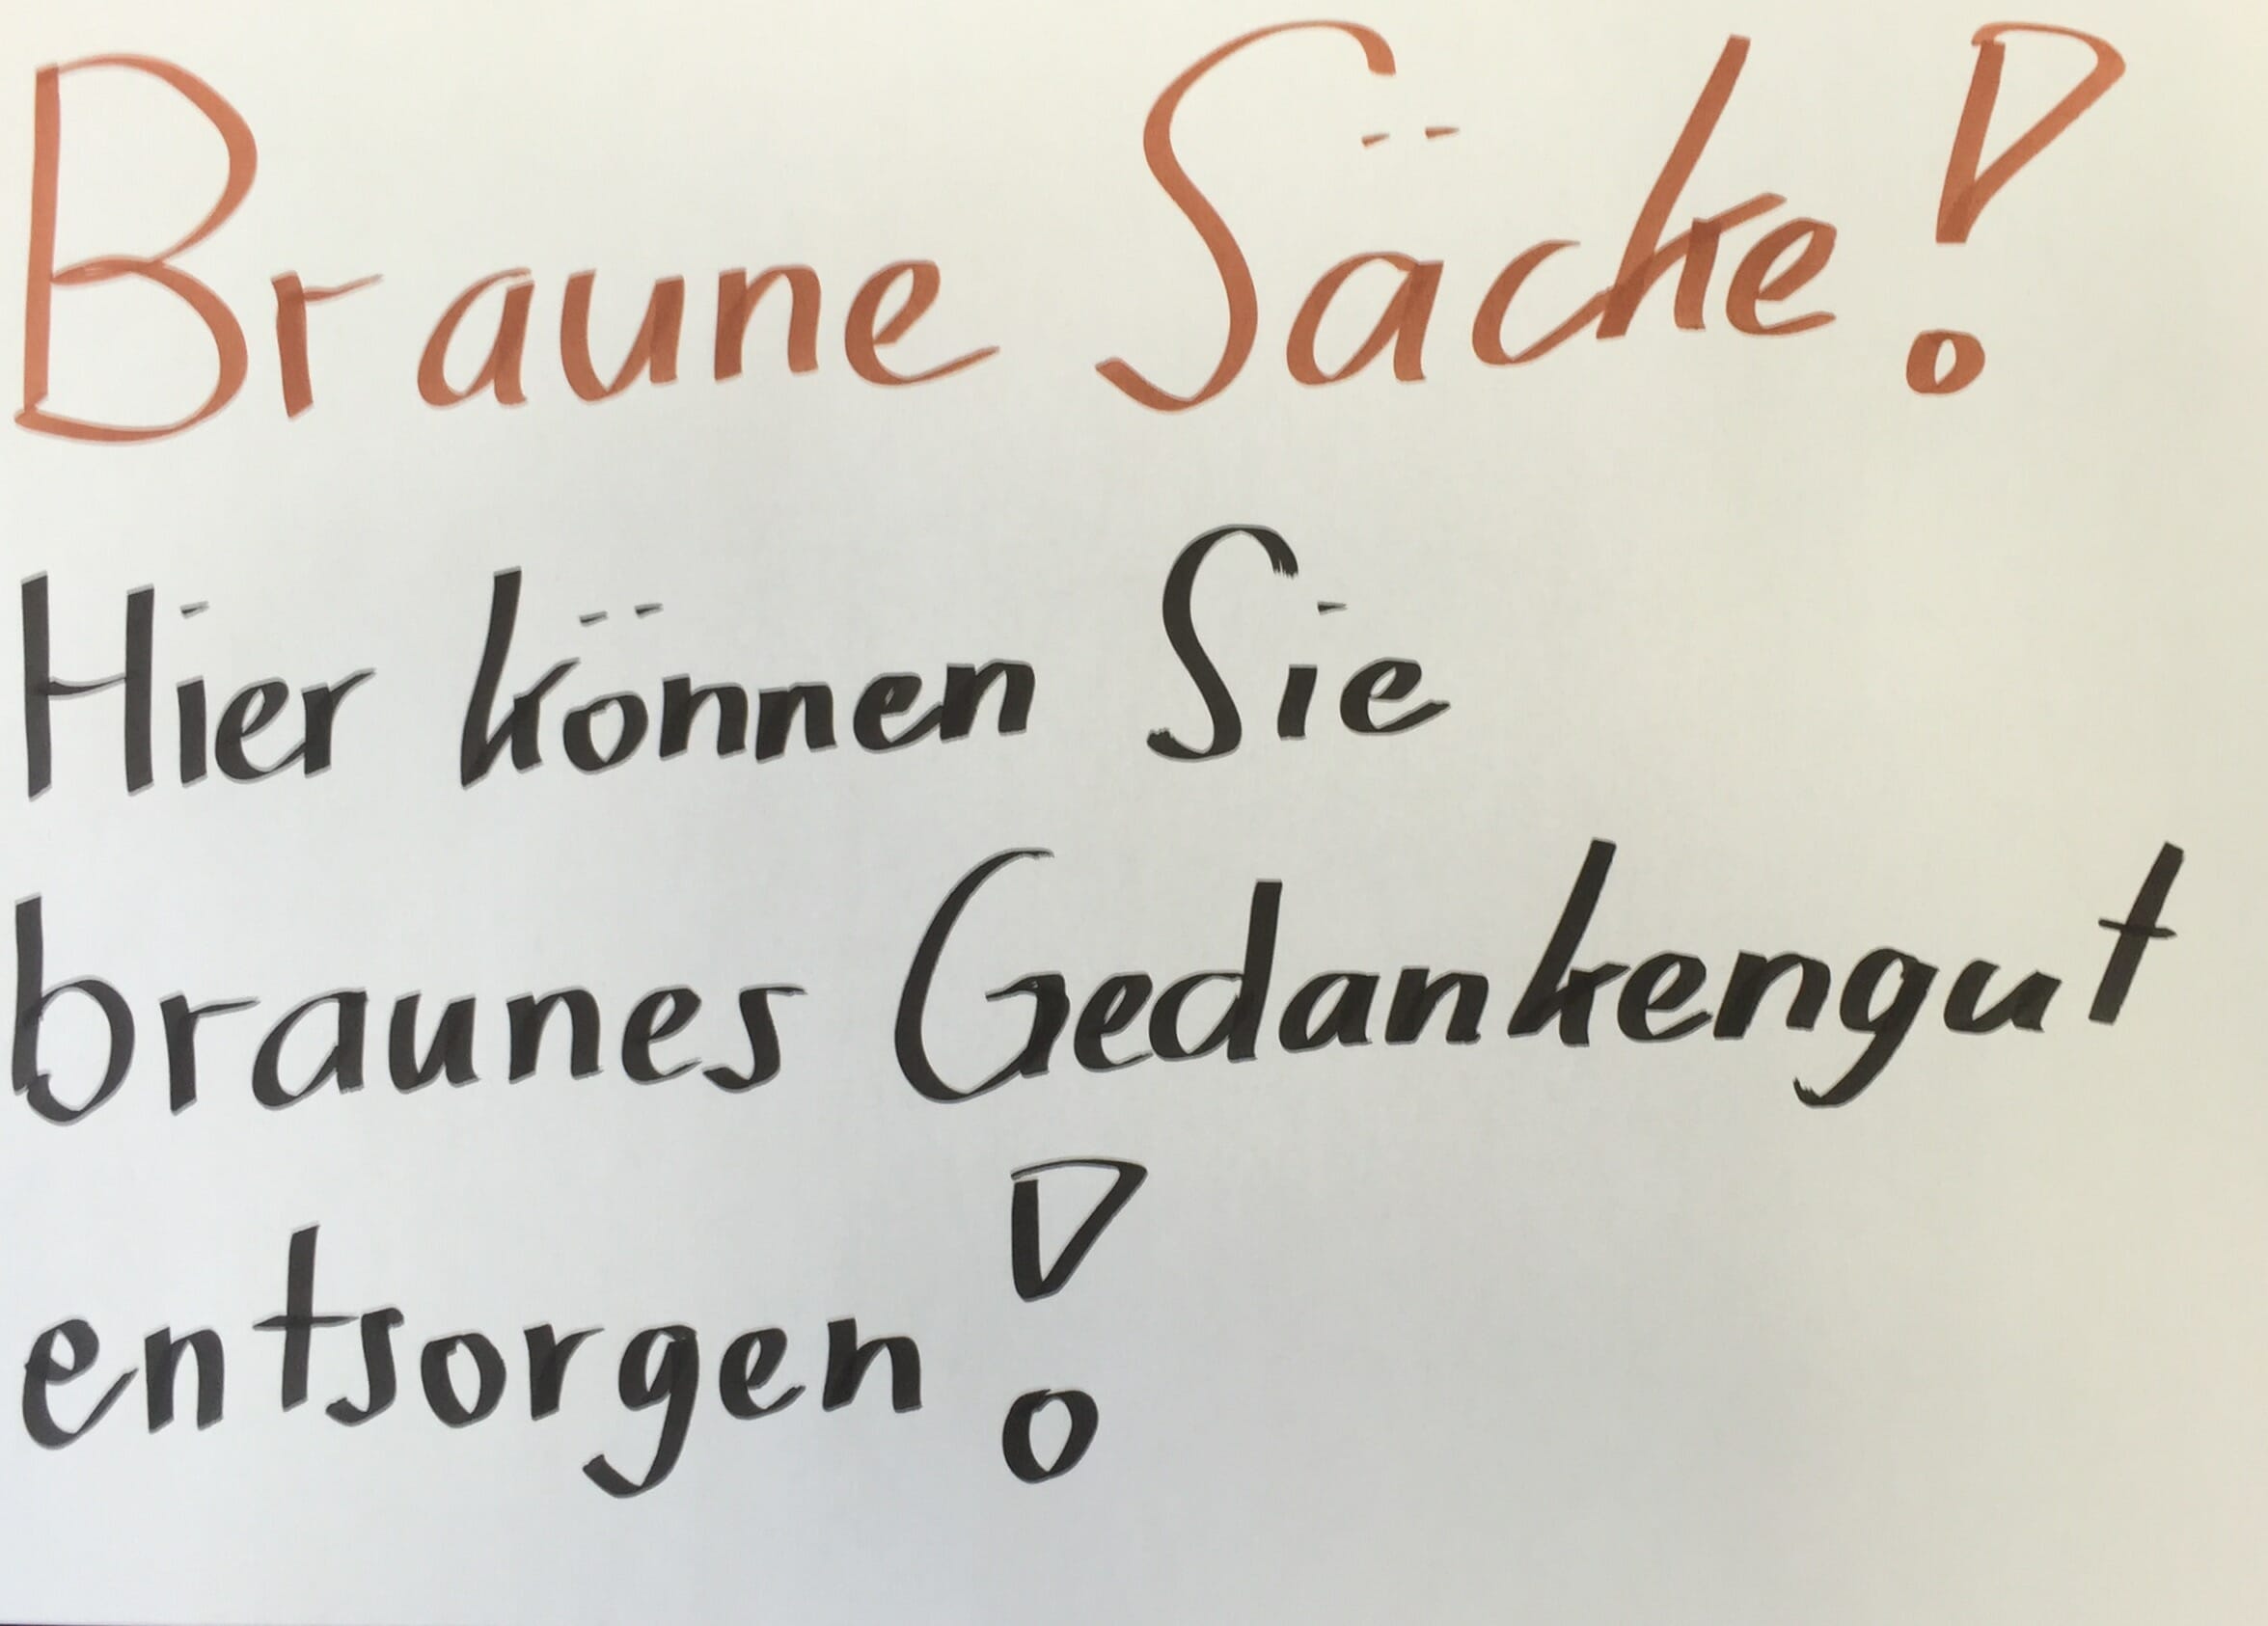 Braune Säcke!
Hier können Sie
braunes Gedankengut
entsorgen!